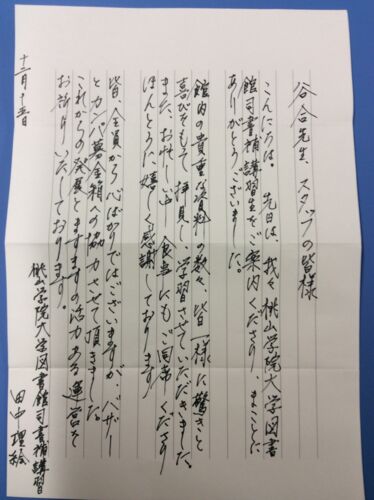 谷合先生、スタッフの皆様
こんにちは。先日は、我々桃山学院大学図書
館司書補講習生をご案内くださり、まことに
ありがとうございました。
館内の貴重な資料の数々、皆一様に驚きと
喜びをもって拝見し、学習させていただきました。
また、お忙しい中、食事にもご同席くださり
ほんとうに嬉しく感謝しております。
皆、全員から心ばかりではございますが、バザー
とカンパ募金箱への協力させて頂きました。
これからの発展とますますの活力ある運営を
お祈りいたしております。
桃山学院大学図書館司書補講習
田中理絵
十二月十五日